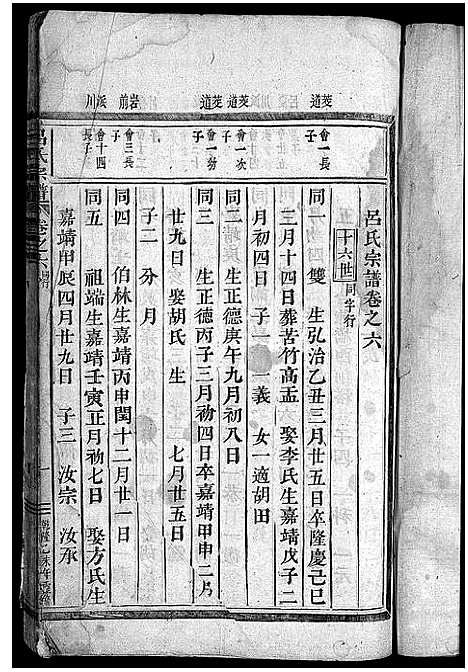 呂氏宗譜卷之六
十六世 同字行
茭道
會一長子
同一 雙 生弘治乙丑三月廿五日卒隆慶己巳
三月十四日葬苦竹高盂 娶李氏生嘉靖戊子二
月初四日 子一 一義 女一適胡田
茭道
會一次子
同二 生正德庚午九月初八日
茭道
會一幼子
同三 生正德丙子三月初四日卒嘉靖甲申二月
廿九日 娶胡氏 生 七月廿五日
子二 分 月
岩前
會三長子
同四 伯林生嘉靖丙申閏十二月廿一日
溪川
會十四長子
同五 祖端生嘉靖壬寅正月初七日 娶方氏生
嘉靖甲辰四月廿九日 子三 汝宗 汝承
呂氏宗譜 卷之六